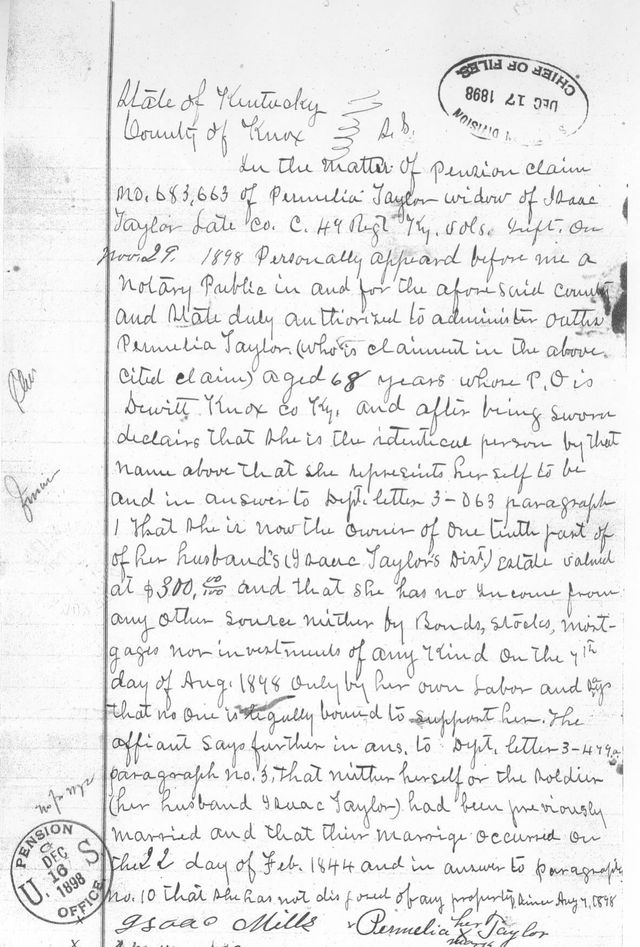 CHIEF OF FILES.
DEC 17 1898
DIVISION
State of Kentucky
County of Knox S.S.
In the matter of Pension claim
No. 683,663 of Permelia Taylor widow of Isaac
Taylor Late Co. C. 49 Regt Ky. Vols. Inft. On
Nov. 29. 1898 Personally appeared before me a
Notary Public in and for the afore said County
and State duly authorized to administer oaths
Permelia Taylor. (who is claiment in the above
cited claim) aged 68 years whose P.O is
Dewitt Knox co Ky. and after being sworn
declairs that she is the identical person by that
name above that she represints her self to be
and in answer to Dept. letter 3-063 paragraph
1 That she is now the owner of one tenth part of
of her husband's (Isaac Taylor's Dist.) Estate valued
at $300.00/100 and that she has no Income from
any other source neither by Bonds, Stocks, mort-
gages nor investments of any Kind on the 7th
day of Aug. 1898 only by her own Labor and
that no one is legully bound to support her. The
affiant says further in ans. to Dept. letter 3-479a
paragraph no. 3, that neither herself or the soldier
(her husband Isaac Taylor) had been previously
married and that their marrige occurred on
the 22 day of Feb. 1844 and in answer to paragraph
No. 10 that she has not disposed of any property, since Aug 7, 1898
Isaac Mills Permelia her X Taylor
mark
U.S. PENSION OFFICE
DEC 16 1898